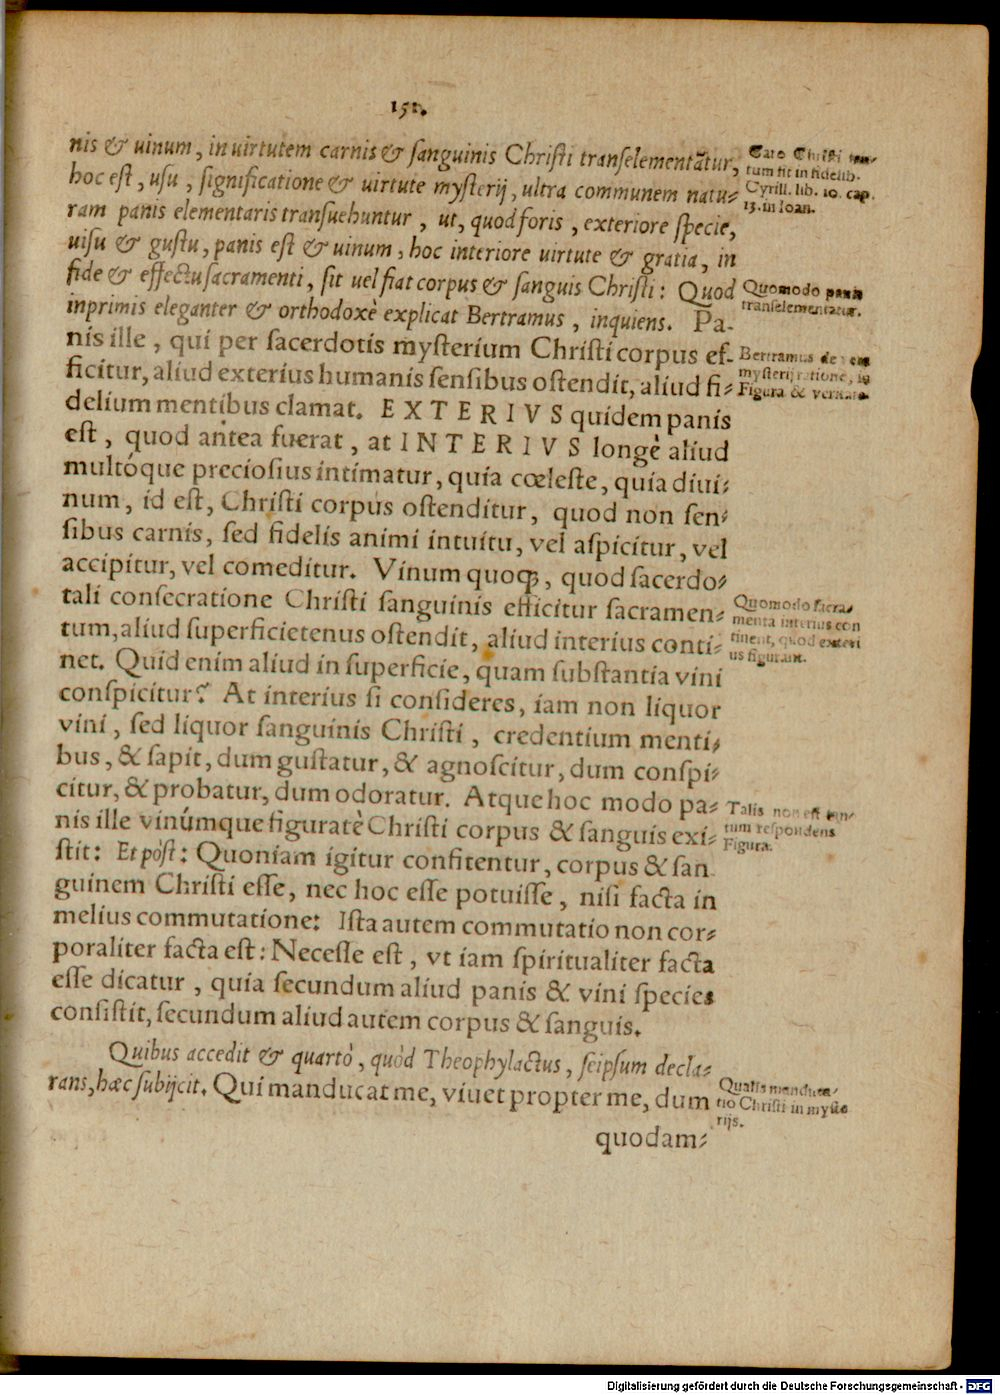 151.
nis & uinum, in uirtutem carnis & ſanguinis Chriſti tranſelementãtur,
hoc eſt, uſu, ſignificatione & uirtute myſterij, ultra communem natu⸗
ram panis elementaris tranſuehuntur, ut, quod foris, exteriore ſpecie,
uiſu & guſtu, panis eſt & uinum, hoc interiore uirtute & gratia, in
fide & effectu ſacramenti, ſit uel fiat corpus & ſanguis Chriſti: Quod
inprimis eleganter & orthodoxè explicat Bertramus, inquiens. Pa-
nis ille, qui per ſacerdotis myſterium Chriſti corpus ef-
ficitur, aliud exterius humanis ſenſibus oſtendit, aliud fi⸗
delium mentibus clamat. EXTERIVS quidem panis
eſt, quod antea fuerat, at INTERIVS longè aliud
multóque precioſius intimatur, quia cœleſte, quia diui⸗
num, id eſt, Chriſti corpus oſtenditur, quod non ſen⸗
ſibus carnis, ſed fidelis animi intuitu, vel aſpicitur, vel
accipitur, vel comeditur. Vinum quoqꝫ, quod ſacerdo⸗
tali conſecratione Chriſti ſanguinis efficitur ſacramen⸗
tum, aliud ſuperficietenus oſtendit, aliud interius conti⸗
net. Quid enim aliud in ſuperficie, quam ſubſtantia vini
conſpicitur? At interius ſi conſideres, iam non liquor
vini, ſed liquor ſanguinis Chriſti, credentium menti⸗
bus, & ſapit, dum guſtatur, & agnoſcitur, dum conſpi⸗
citur, & probatur, dum odoratur. Atque hoc modo pa⸗
nis ille vinúmque figuratè Chriſti corpus & ſanguis exi⸗
ſtit: Et pòſt: Quoniam igitur confitentur, corpus & ſan
guinem Chriſti eſſe, nec hoc eſſe potuiſſe, niſi facta in
melius commutatione: Iſta autem commutatio non cor⸗
poraliter facta eſt: Neceſſe eſt, vt iam ſpiritualiter facta
eſſe dicatur, quia ſecundum aliud panis & vini ſpecies
conſiſtit, ſecundum aliud autem corpus & ſanguis.
Quibus accedit & quartò, quòd Theophylactus, ſeipſum decla⸗
rans, hæc ſubijcit. Qui manducat me, viuet propter me, dum
quodam⸗
Caro Chriſti tan⸗
tum fit in fidelib.
Cyrill. lib. 10. cap.
13. in Ioan.
Quomodo panis
tranſelementatur.
Bertramus de
myſterij ratione, in
Figura & veritate.
Quomodo ſacra⸗
menta interius con
tinent, quod exteri
us figurant.
Talis non eſt tan⸗
tum reſpondens
Figura.
Qualis manduca⸗
tio Chriſti in myſte
rijs.
Digitalisierung gefördert durch die Deutsche Forschungsgemeinschaft - DFG